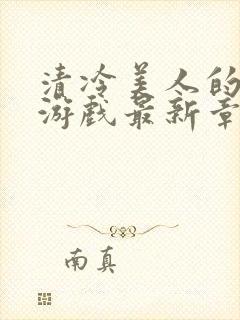 清冷美人的
游戏最新章
南真